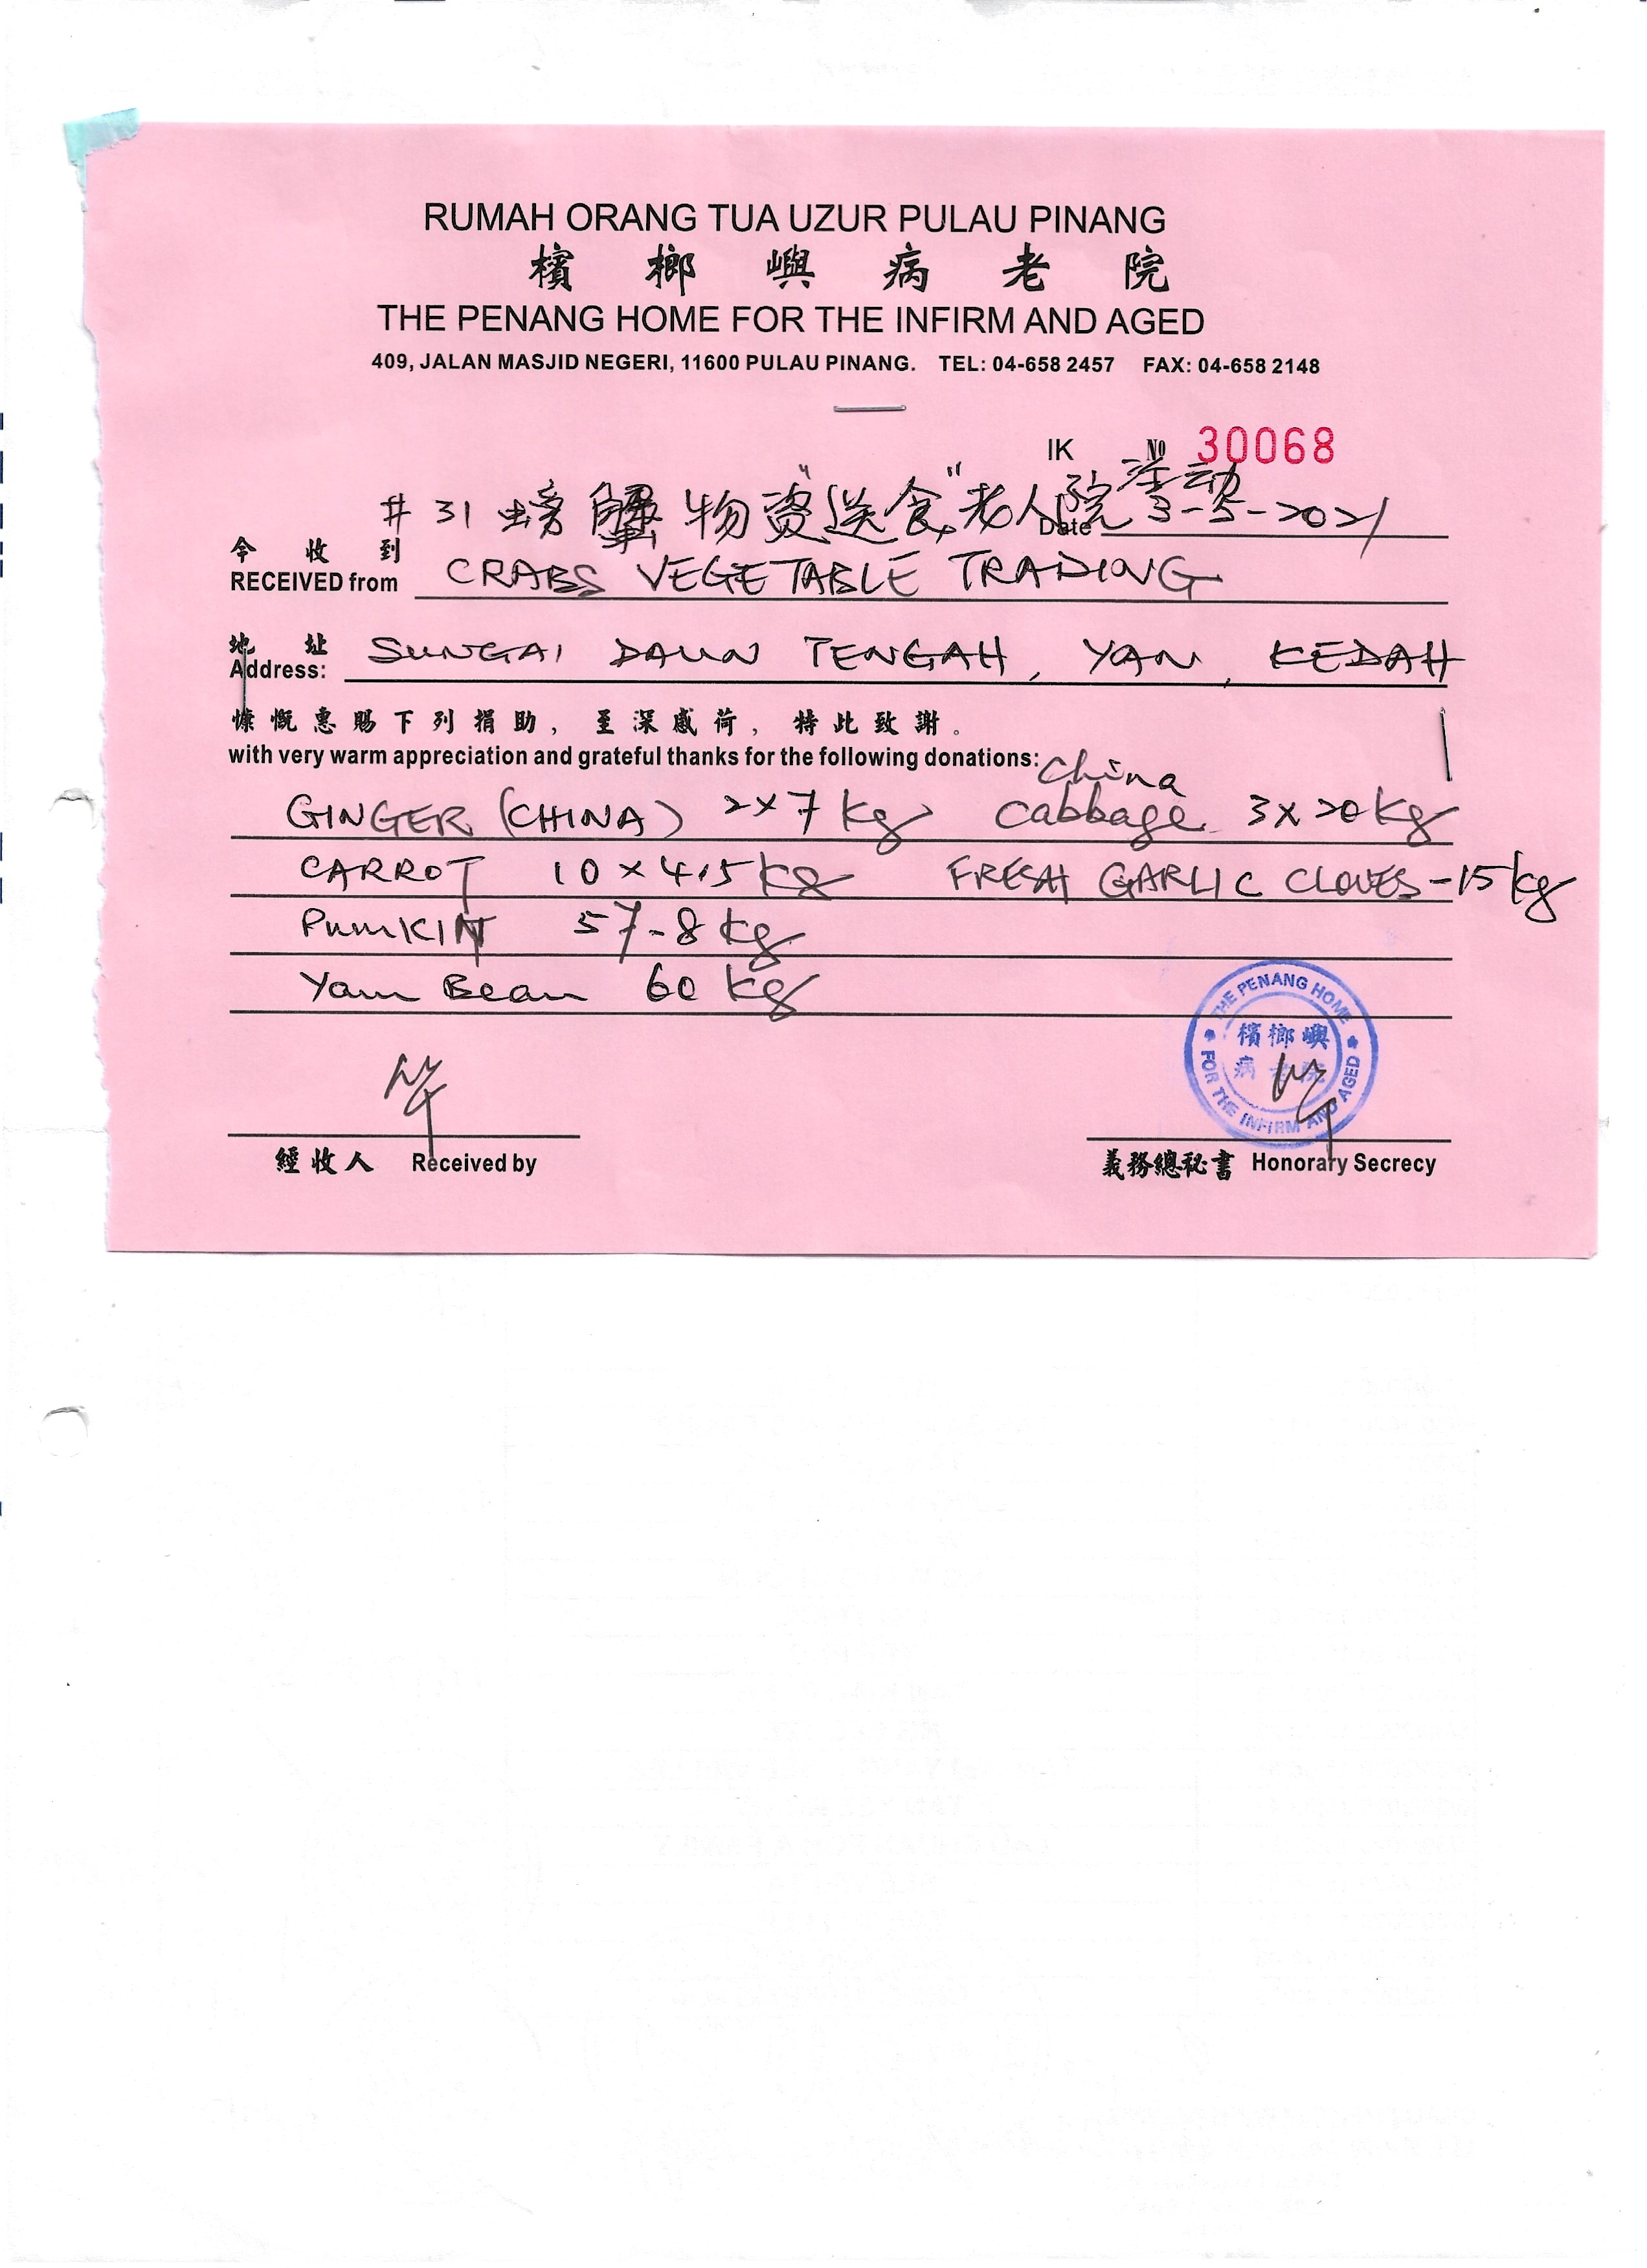 RUMAH ORANG TUA UZUR PULAU PINANG
檳榔嶼病老院
THE PENANG HOME FOR THE INFIRM AND AGED
409, JALAN MASJID NEGERI, 11600 PULAU PINANG. TEL: 04-658 2457 FAX: 04-658 2148
IK № 30068
#31 螃蟹物資"送食"老人院活动
Date 3-5-2021
今收到
RECEIVED from CRABS VEGETABLE TRADING
地址
Address: SUNGAI DAUN TENGAH, YAN, KEDAH
慷慨惠賜下列捐助, 至深感荷, 特此致謝。
with very warm appreciation and grateful thanks for the following donations:
GINGER (CHINA) 2x7 kg China Cabbage 3x20kg
CARROT 10x4.5kg FRESH GARLIC CLOVES-15kg
PumKIN 57-8kg
Yam Bean 60 kg
THE PENANG HOME
檳榔嶼
病老院
FOR THE INFIRM AND AGED
經收人 Received by
義務總秘書 Honorary Secrecy